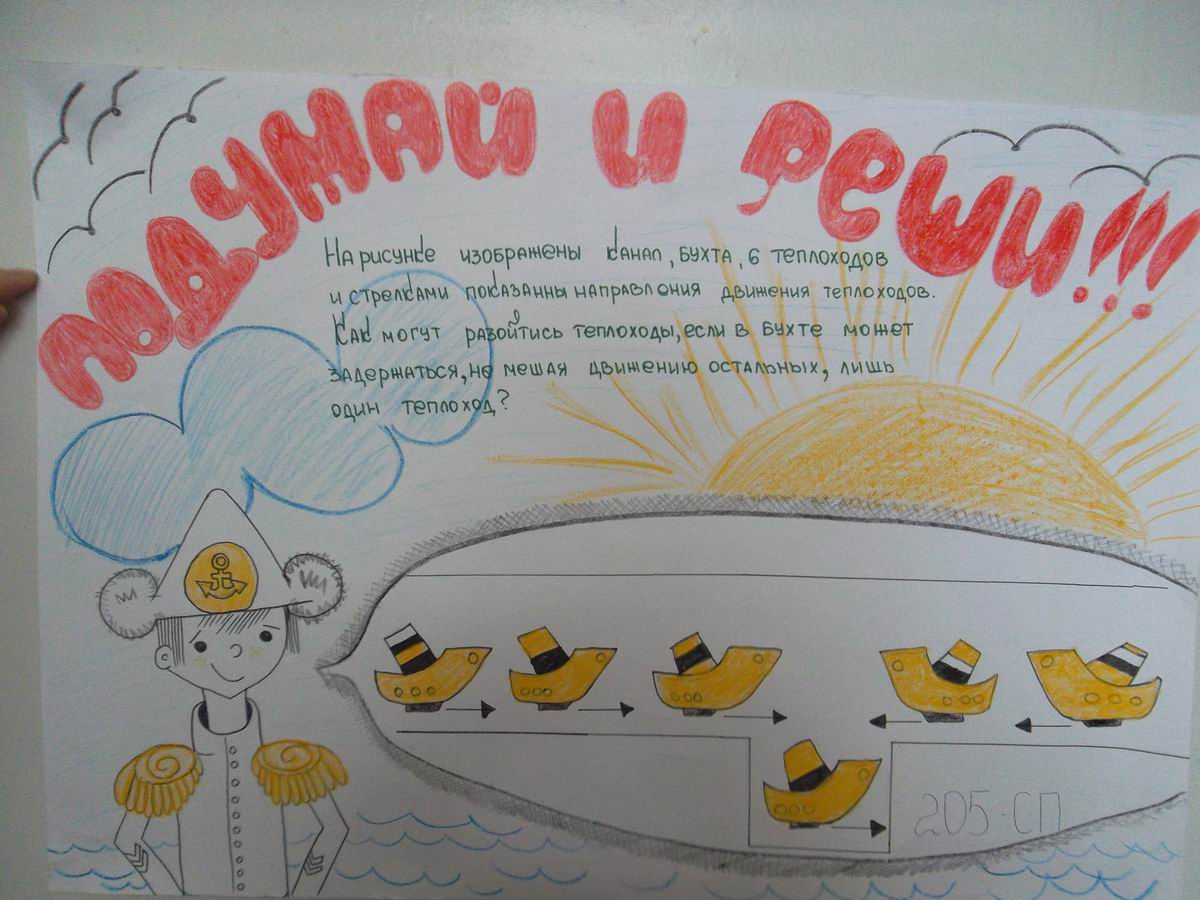 ПОДУМАЙ И РЕШИ!!!
На рисунке изображены канал, бухта, 6 теплоходов
и стрелками показанны направления движения теплоходов.
Как могут разойтись теплоходы, если в бухте может
задержаться, не мешая движению остальных, лишь
один теплоход?
205-СП